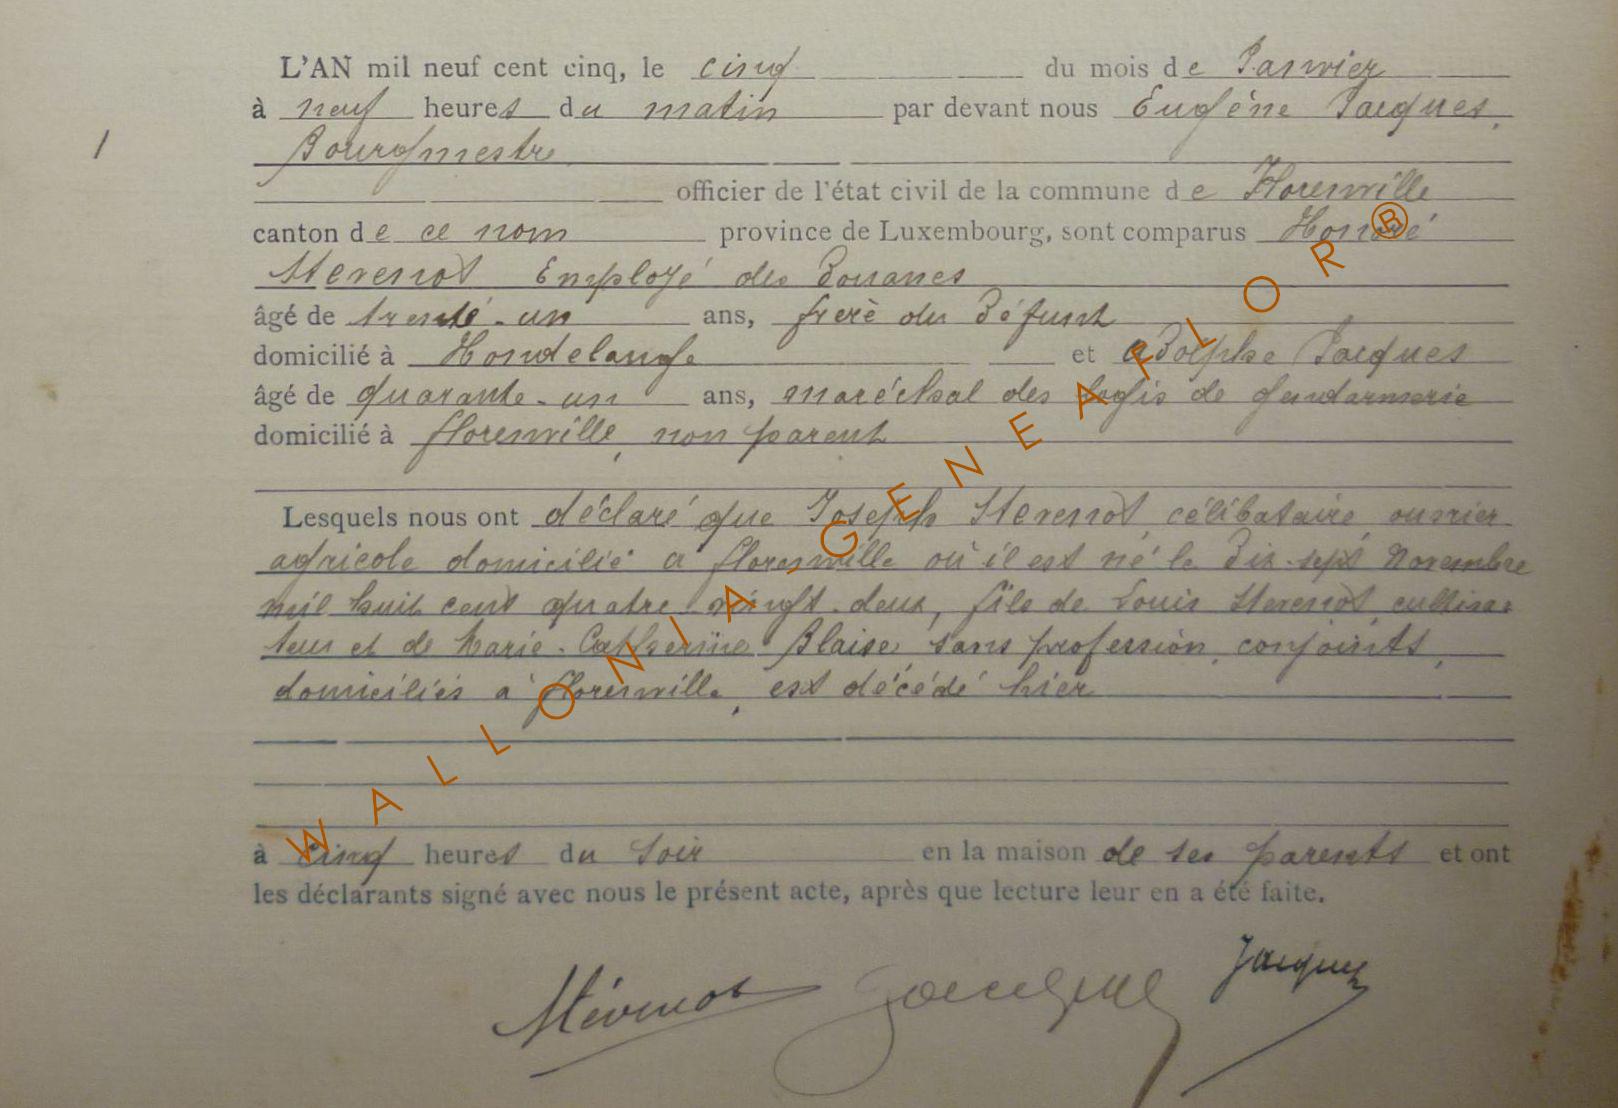 L'AN mil neuf cent cinq, le cinq du mois de Janvier
à neuf heures du matin par devant nous Eugène Jacques,
Bourgmestre
officier de l'état civil de la commune de Florenville
canton de ce nom province de Luxembourg, sont comparus Honoré
Stevenot Employé des Douanes
âgé de trente-un ans, frère du Défunt
domicilié à Hondelange et Adolphe Jacques
âgé de quarante-un ans, maréchal des logis de gendarmerie
domicilié à florenville, non parent
Lesquels nous ont déclaré que Joseph Stevenot célibataire ouvrier
agricole domicilié à florenville où il est né le Dix-sept Novembre
mil huit cent quatre-vingt-deux, fils de Louis Stevenot cultiva-
teur et de Marie-Catherine Blaise sans profession, conjoints,
domiciliés à florenville, est décédé hier
à cinq heures du soir en la maison de ses parents et ont
les déclarants signé avec nous le présent acte, après que lecture leur en a été faite.
Stévenot Jacques Jacques
WALLONIA-GENEAFLOR®